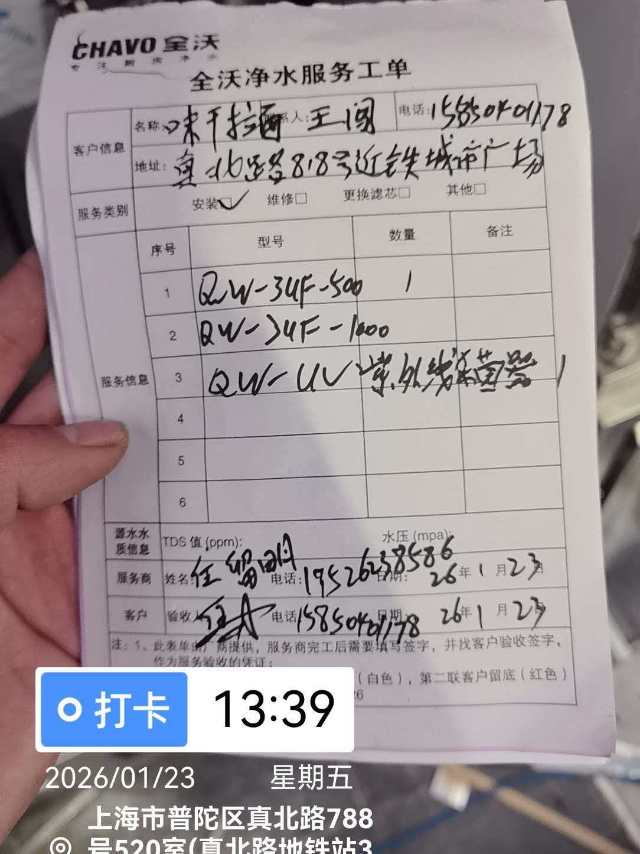 CHAVO 全沃
专注厨房净水
全沃净水服务工单
客户信息
名称: 味千拉面 系人: 王闯 电话: 15850401178
地址: 真北路818号近铁城市广场
服务类别 安装☑ 维修□ 更换滤芯□ 其他□
服务信息
序号 型号 数量 备注
1 QW-3UF-500 1
2 QW-3UF-1000
3 QW-UV 紫外线杀菌器 1
4
5
6
源水水质信息 TDS 值 (ppm): 水压 (mpa):
服务商 姓名: 任留明 电话: 19526238586 日期: 26年1月23日
客户 验收 电话 15850401178 日期 26年1月23
注: 1、此表单由厂商提供，服务商完工后需要填写签字，并找客户验收签字，
作为服务验收的凭证;
(白色)，第二联客户留底 (红色)
打卡 13:39
2026/01/23 星期五
上海市普陀区真北路788
号520室(真北路地铁站3